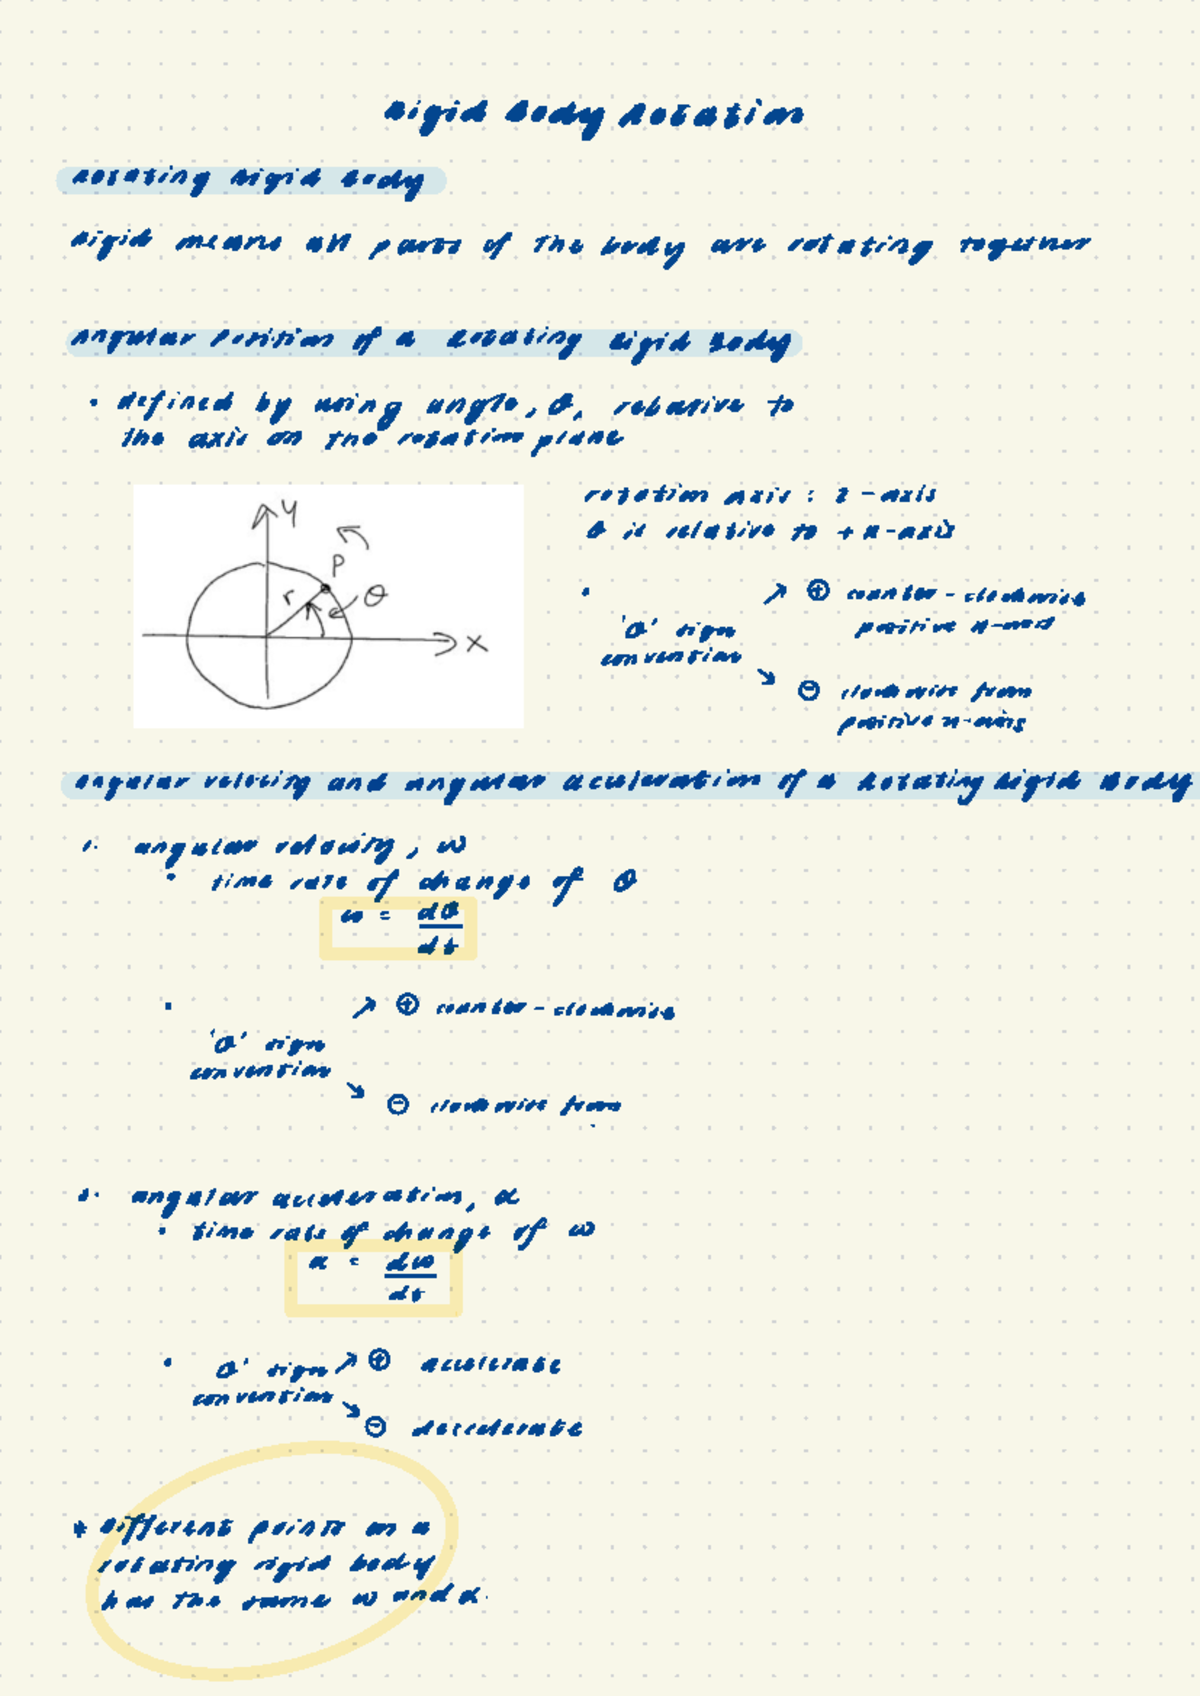 Rigid Body Rotation
Rotating Rigid Body
Rigid means all parts of the body are rotating together
Angular Position of a Rotating Rigid Body
• defined by using angle, θ, relative to
the axis on the rotation plane
y
P
r
θ
x
rotation axis : z-axis
θ is relative to +x-axis
• 'θ' sign
convention
↗ ⊕ counter-clockwise
positive x-axis
↘ ⊖ clockwise from
positive x-axis
Angular velocity and angular acceleration of a Rotating Rigid Body
1. angular velocity, ω
• time rate of change of θ
ω = dθ
dt
• 'θ' sign
convention
↗ ⊕ counter-clockwise
↘ ⊖ clockwise from
2. angular acceleration, α
• time rate of change of ω
α = dω
dt
• θ' sign ↗ ⊕ accelerate
convention
↘ ⊖ decelerate
* Different points on a
rotating rigid body
has the same ω and α.